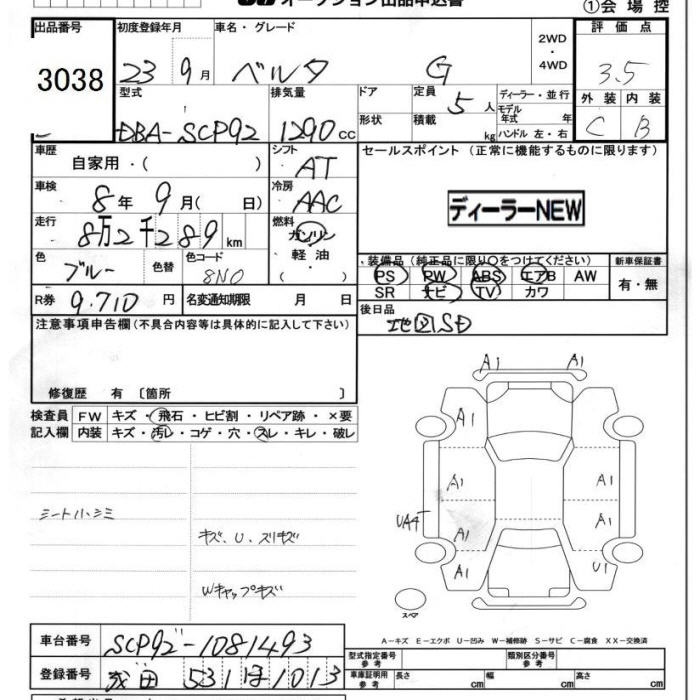 オークション出品申込書 ①会場控
出品番号 初度登録年月 車名・グレード 2WD ・ 4WD 評価点
3038 23 9月 ベルタ G 3.5
型式 排気量 ドア 定員 5人 ディーラー・並行 外装 内装
DBA-SCP92 1290cc 形状 積載 kg モデル年式 年 ハンドル 左・右 C B
車歴 自家用・( ) シフト AT セールスポイント (正常に機能するものに限ります)
車検 8年 9月( 日) 冷房 AAC ディーラーNEW
走行 8万2千289km 燃料 ガソリン 軽油 ( )
色 ブルー 色替 色コード 8N0 装備品(純正品に限り○をつけてください) 新車保証書
PS PW ABS エアB AW 有・無
SR ナビ TV カワ
R券 9.710円 名変通知期限 月 日 後日品
地図SD
注意事項申告欄(不具合内容等は具体的に記入して下さい)
修復歴 有 〔箇所 〕
検査員 FW キズ・飛石・ヒビ割・リペア跡・×要
記入欄 内装 キズ・汚レ・コゲ・穴・スレ・キレ・破レ
A1 A1
A1
A1 A1
UA4T A1 A1
A1 U1
シートハ、シミ
キズ、U、スリキズ
Wキャップキズ
スペア
A－キズ E－エクボ U－凹み W－補修跡 S－サビ C－腐食 XX－交換済
車台番号 SCP92-1081493 型式指定番号 参考 類別区分番号 参考
登録番号 531ほ1013 車庫証明用 参考 長さ cm 幅 cm 高さ cm